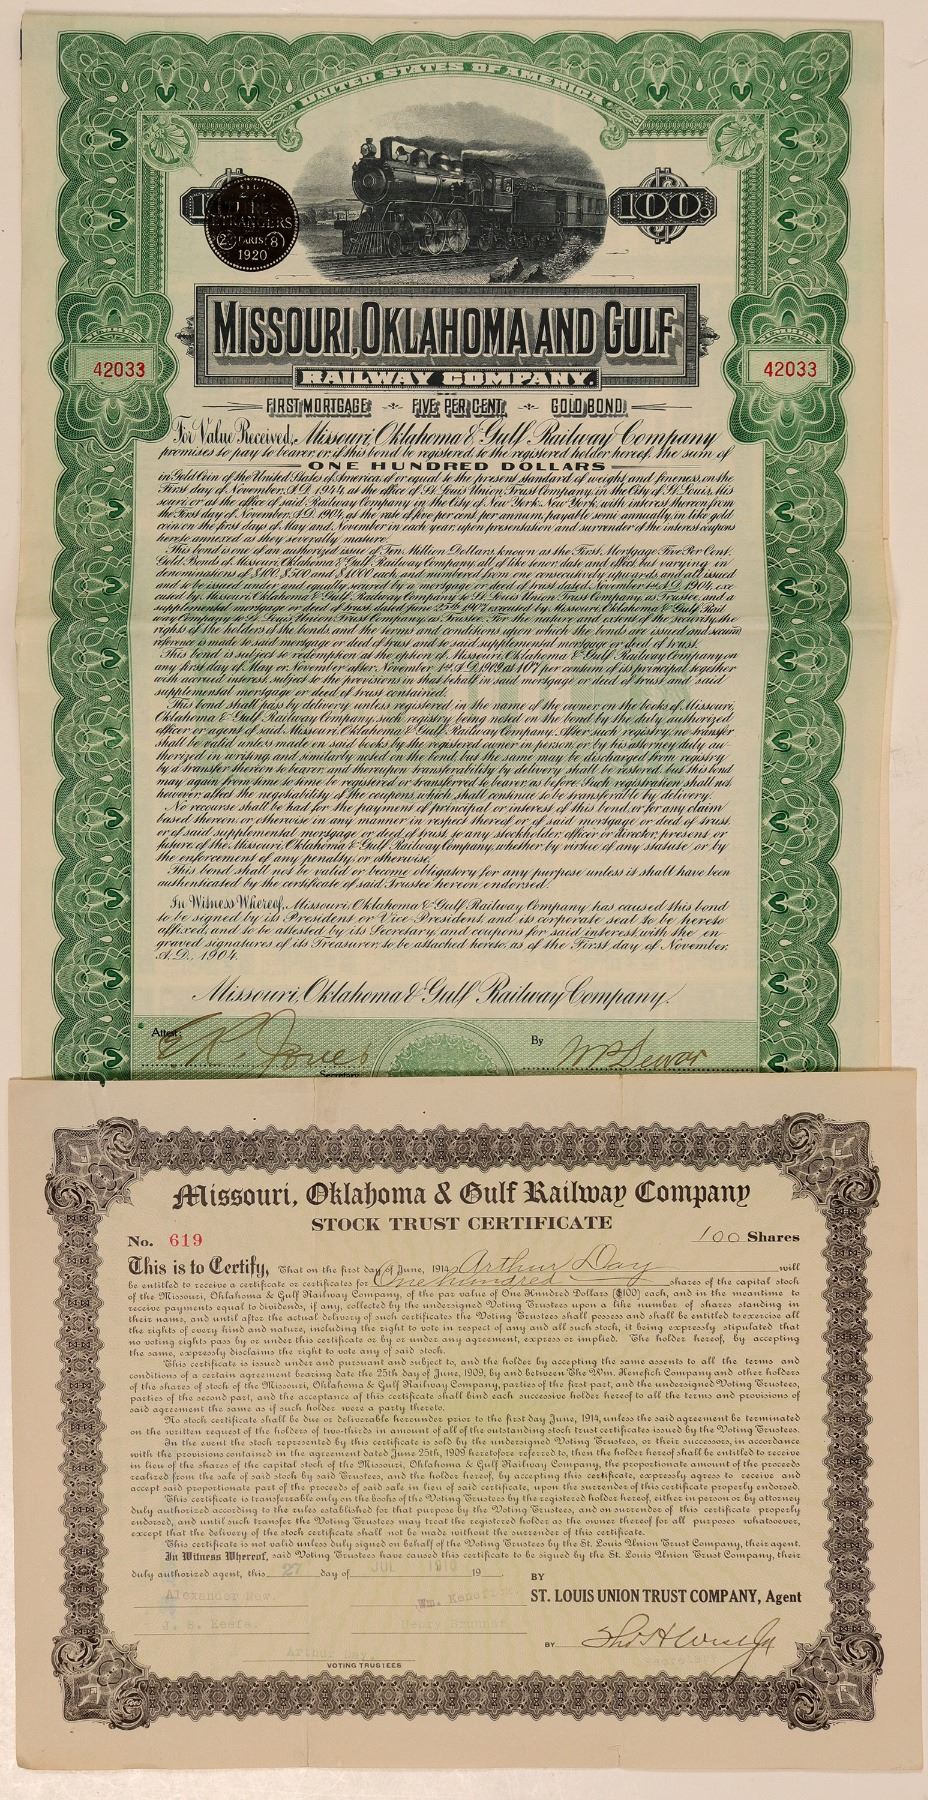 UNITED STATES OF AMERICA
100
ETRANGERS
2 PARIS 8
1920
MISSOURI, OKLAHOMA AND GULF
RAILWAY COMPANY.
NUMBER
42033
NUMBER
42033
FIRST MORTGAGE FIVE PER CENT. GOLD BOND.
For Value Received, Missouri, Oklahoma & Gulf Railway Company
promises to pay to bearer, or, if this bond be registered, to the registered holder hereof, the sum of
ONE HUNDRED DOLLARS
in Gold Coin of the United States of America, of or equal to the present standard of weight and fineness, on the
First day of November, A.D. 1944, at the office of St. Louis Union Trust Company, in the City of St. Louis, Mis
souri, or at the office of said Railway Company in the City of New York, New York, with interest thereon from
the First day of November, A.D. 1904, at the rate of five per cent. per annum, payable semi-annually, in like gold
coin, on the first days of May and November in each year, upon presentation and surrender of the interest coupons
hereto annexed as they severally mature.
This bond is one of an authorized issue of Ten Million Dollars, known as the First Mortgage Five Per Cent.
Gold Bonds of Missouri, Oklahoma & Gulf Railway Company, all of like tenor, date and effect, but varying in
denominations of $100, $500 and $1000 each, and numbered from one consecutively upwards and all issued
and to be issued under and equally secured by a mortgage or deed of trust, dated November 1st, A.D. 1904, exe
cuted by Missouri, Oklahoma & Gulf Railway Company to St. Louis Union Trust Company, as Trustee, and a
supplemental mortgage or deed of trust, dated June 25th, 1907, executed by Missouri, Oklahoma & Gulf Rail
way Company to St. Louis Union Trust Company, as Trustee. For the nature and extent of the security, the
rights of the holders of the bonds, and the terms and conditions upon which the bonds are issued and secured
reference is made to said mortgage or deed of trust and to said supplemental mortgage or deed of trust.
This bond is subject to redemption at the option of Missouri, Oklahoma & Gulf Railway Company on
any first day of May or November after November 1st, A.D. 1909, at 107 per centum of its principal, together
with accrued interest, subject to the provisions in that behalf in said mortgage or deed of trust and said
supplemental mortgage or deed of trust contained.
This bond shall pass by delivery unless registered in the name of the owner on the books of Missouri,
Oklahoma & Gulf Railway Company, such registry being noted on the bond by the duly authorized
officer or agent of said Missouri, Oklahoma & Gulf Railway Company. After such registry, no transfer
shall be valid unless made on said books by the registered owner in person, or by his attorney duly au-
thorized in writing, and similarly noted on the bond, but the same may be discharged from registry
by a transfer thereon to bearer, and thereupon transferability by delivery shall be restored, but this bond
may again from time to time be registered or transferred to bearer, as before. Such registration shall not
however affect the negotiability of the coupons, which shall continue to be transferable by delivery.
No recourse shall be had for the payment of principal or interest of this bond, or for any claim
based thereon, or otherwise in any manner in respect thereof or of said mortgage or deed of trust,
or of said supplemental mortgage or deed of trust, to any stockholder, officer or director, present or
future, of the Missouri, Oklahoma & Gulf Railway Company, whether by virtue of any statute or by
the enforcement of any penalty, or otherwise.
This bond shall not be valid or become obligatory for any purpose unless it shall have been
authenticated by the certificate of said Trustee hereon endorsed.
In Witness Whereof, Missouri, Oklahoma & Gulf Railway Company has caused this bond
to be signed by its President or Vice-President, and its corporate seal to be hereto
affixed, and to be attested by its Secretary, and coupons for said interest, with the en-
graved signatures of its Treasurer, to be attached hereto, as of the First day of November,
A.D., 1904.
Missouri, Oklahoma & Gulf Railway Company.
Attest: E R. Jones
Secretary
By W P Dewar
Missouri, Oklahoma & Gulf Railway Company
STOCK TRUST CERTIFICATE
No. 619
100 Shares
This is to Certify, That on the first day of June, 1914, Arthur Day will
be entitled to receive a certificate or certificates for One hundred shares of the capital stock
of the Missouri, Oklahoma & Gulf Railway Company, of the par value of One Hundred Dollars ($100) each, and in the meantime to
receive payments equal to dividends, if any, collected by the undersigned Voting Trustees upon a like number of shares standing in
their name, and until after the actual delivery of such certificates the Voting Trustees shall possess and shall be entitled to exercise all
the rights of every kind and nature, including the right to vote in respect of any and all such stock, it being expressly stipulated that
no voting rights pass by or under this certificate or by or under any agreement, express or implied. The holder hereof, by accepting
the same, expressly disclaims the right to vote any of said stock.
This certificate is issued under and pursuant and subject to, and the holder by accepting the same assents to all the terms and
conditions of a certain agreement bearing date the 25th day of June, 1909, by and between The Wm. Kenefick Company and other holders
of the shares of stock of the Missouri, Oklahoma & Gulf Railway Company, parties of the first part, and the undersigned Voting Trustees,
parties of the second part, and the acceptance of this certificate shall bind each successive holder hereof to all the terms and provisions of
said agreement the same as if such holder were a party thereto.
No stock certificate shall be due or deliverable hereunder prior to the first day June, 1914, unless the said agreement be terminated
on the written request of the holders of two-thirds in amount of all of the outstanding stock trust certificates issued by the Voting Trustees.
In the event the stock represented by this certificate is sold by the undersigned Voting Trustees, or their successors, in accordance
with the provisions contained in the agreement dated June 25th, 1909 heretofore referred to, then the holder hereof shall be entitled to receive
in lieu of the shares of the capital stock of the Missouri, Oklahoma & Gulf Railway Company, the proportionate amount of the proceeds
realized from the sale of said stock by said Trustees, and the holder hereof, by accepting this certificate, expressly agrees to receive and
accept said proportionate part of the proceeds of said sale in lieu of said certificate, upon the surrender of this certificate properly endorsed.
This certificate is transferable only on the books of the Voting Trustees by the registered holder hereof, either in person or by attorney
duly authorized according to the rules established for that purpose by the Voting Trustees, and on surrender of this certificate properly
endorsed, and until such transfer the Voting Trustees may treat the registered holder as the owner thereof for all purposes whatsoever,
except that the delivery of the stock certificate shall not be made without the surrender of this certificate.
This certificate is not valid unless duly signed on behalf of the Voting Trustees by the St. Louis Union Trust Company, their agent.
In Witness Whereof, said Voting Trustees have caused this certificate to be signed by the St. Louis Union Trust Company, their
duly authorized agent, this 27 day of JUL 1910 19
Alexander New.
Wm. Kenefick
J. S. Keefe.
Henry
Arthur
VOTING TRUSTEES
BY
ST. LOUIS UNION TRUST COMPANY, Agent
BY